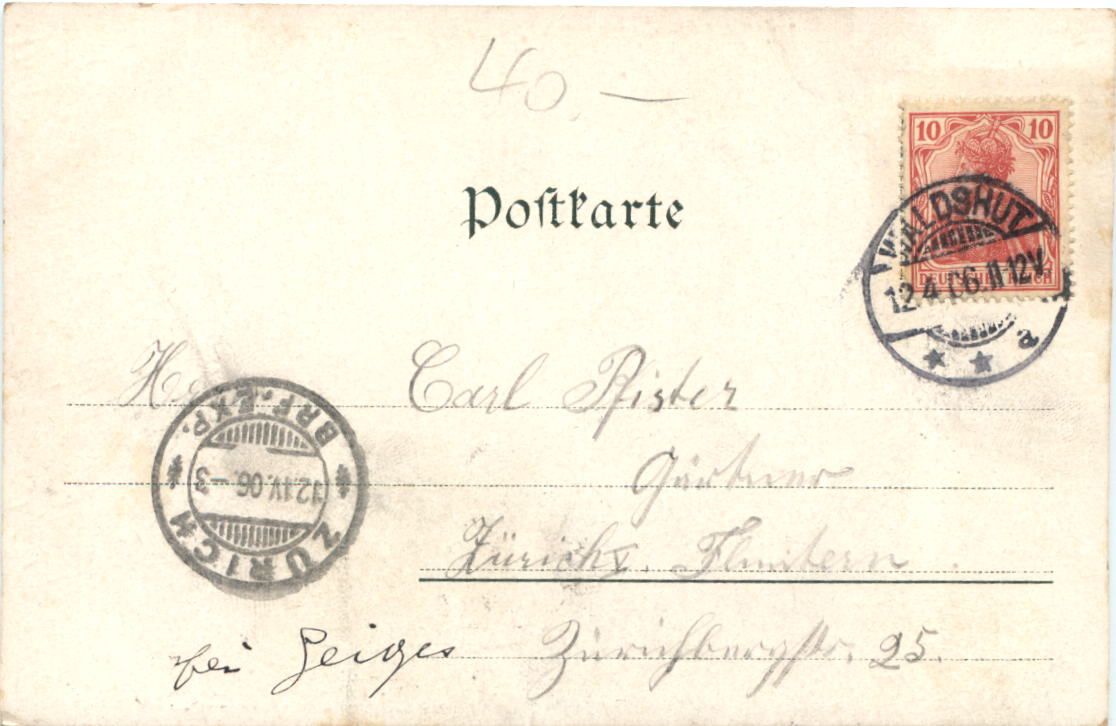 40.—
Postkarte
10 10
DEUTSCHES REICH
WALDSHUT
12.4.06.11-12V.
a
Carl Pfister
Gärtner
Zürich V. Fluntern
bei Geiges Zürichbergstr. 25.
ZÜRICH
12.IV.06.-3
BRF. EXP.